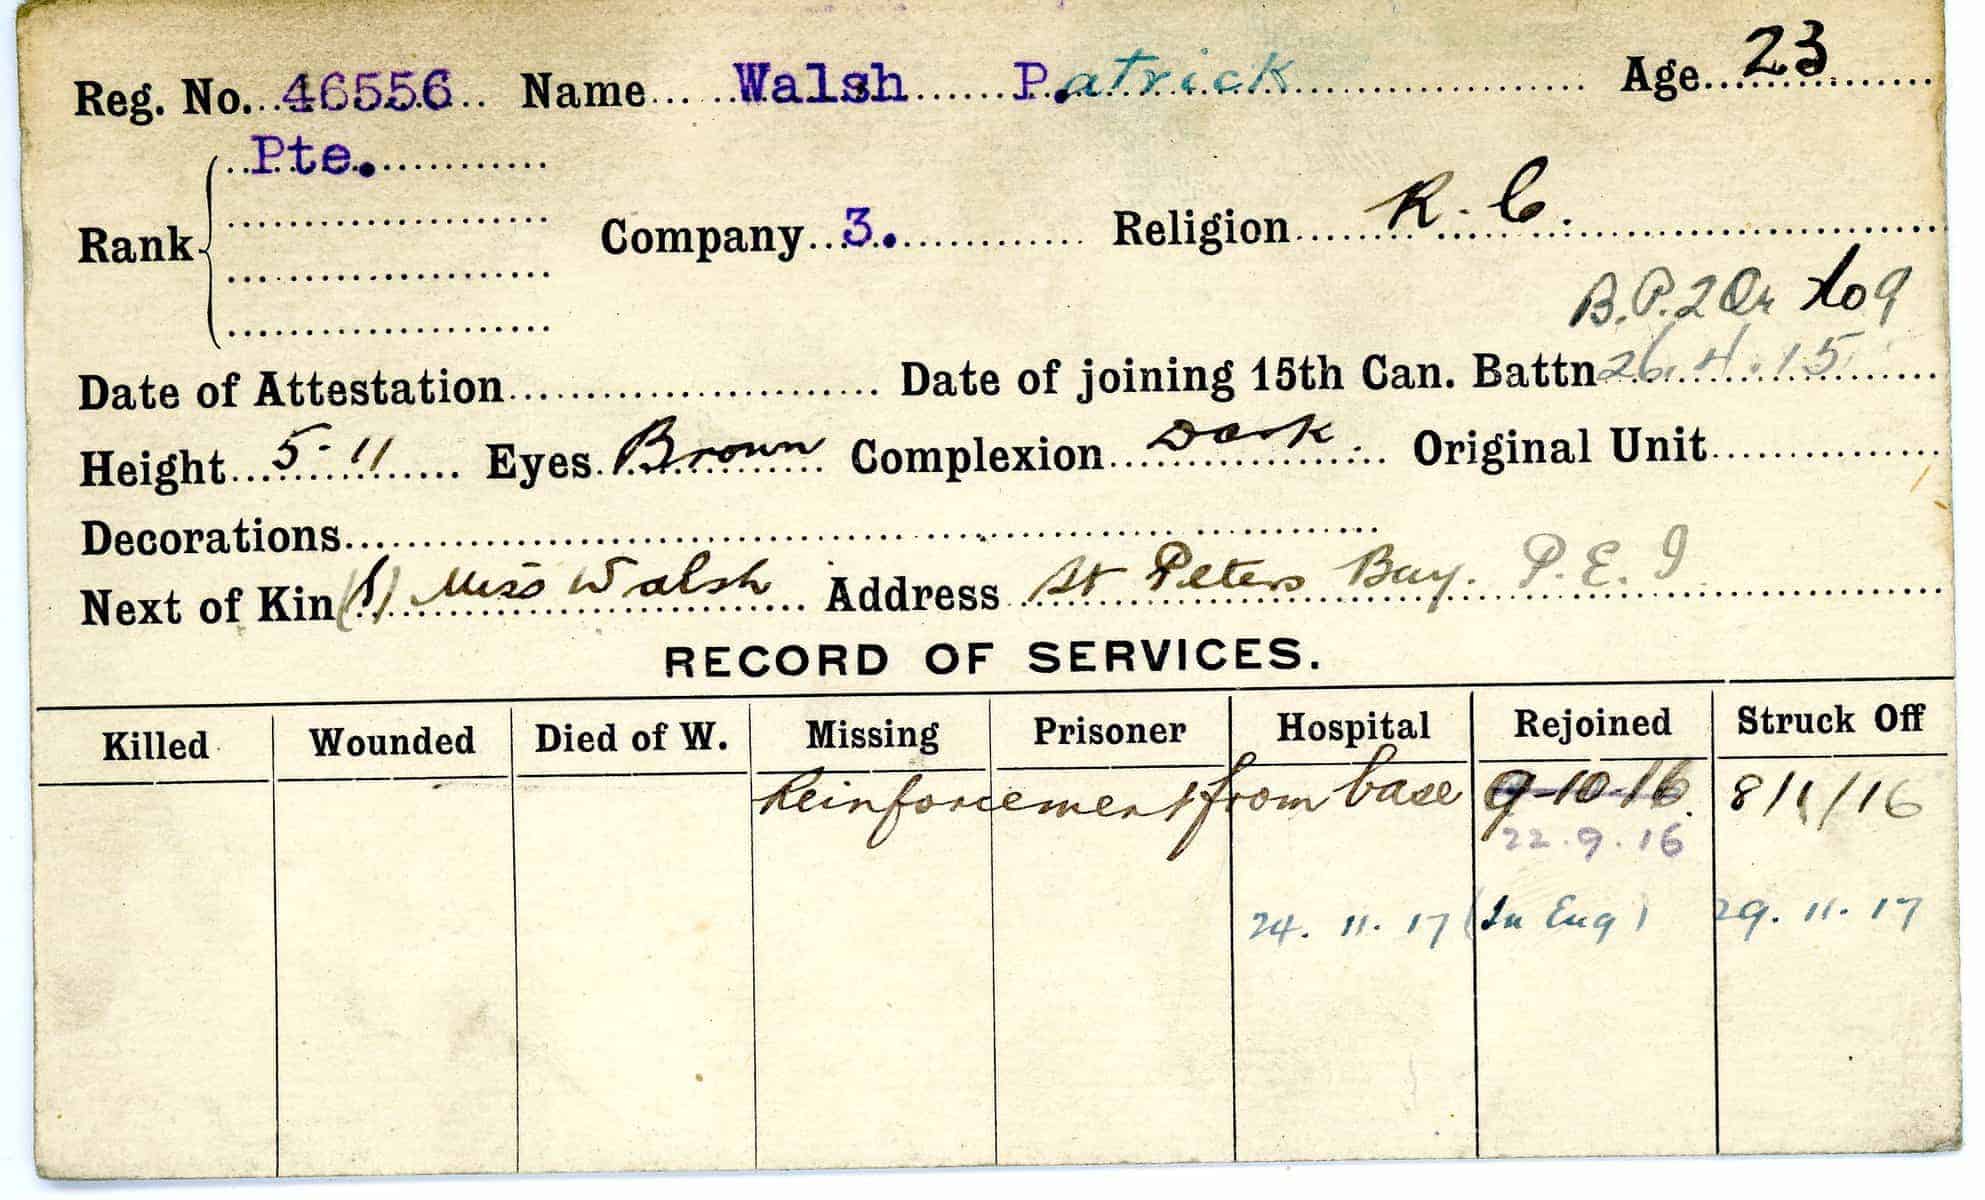 Reg. No. 46556 Name Walsh P.atrick Age 23
Pte.
Rank Company 3. Religion R. C.
B.P.2 Or to 9
Date of Attestation Date of joining 15th Can. Battn 26.4.15
Height 5-11 Eyes Brown Complexion Dark Original Unit
Decorations
Next of Kin (S) Miss Walsh Address St Peters Bay. P.E.I
RECORD OF SERVICES.
Killed Wounded Died of W. Missing Prisoner Hospital Rejoined Struck Off
Reinforcement from base 9-10-16. 8/11/16
22.9.16
24.11.17 (In Eng) 29.11.17